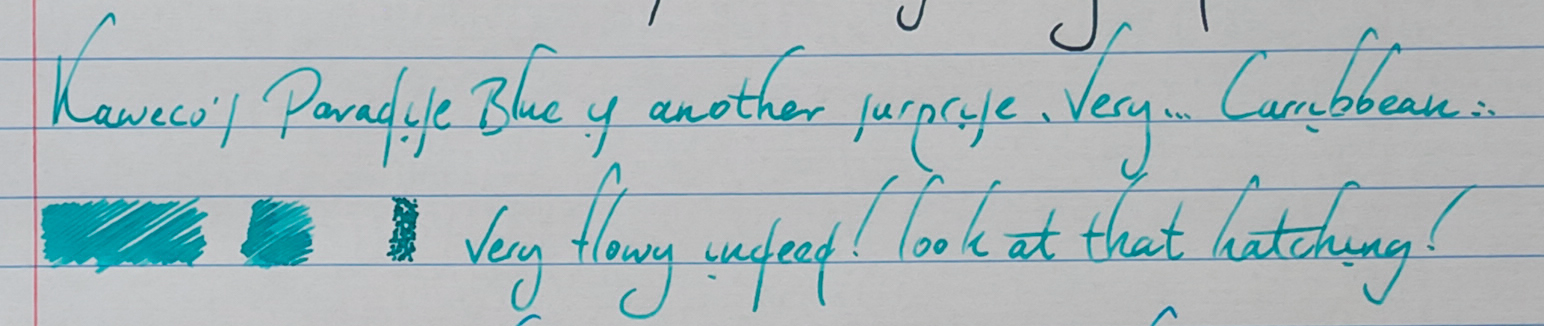 Kaweco's Paradise Blue is another surprise. Very... Carribbean :.
Very flowy indeed! look at that hatching!